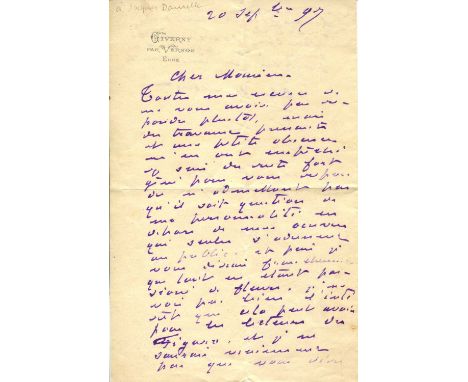 à Jacques Daurelle
20 Septbre 97
GIVERNY
PAR VERNON
EURE
Cher Monsieur
Toutes mes excuses de
ne vous avoir pas ré-
pondu plutôt, mais
des travaux pressants
et une petite absence
m'en ont empêché
je suis du reste fort
gêné pour vous répon-
dre n'admettant pas
qu'il soit question de
ma personnalité en
dehors de mes œuvres
qui seules s'adressent
au public. et puis je
vous dirai franchement
que tout en étant pas-
sionné de fleurs, je ne
vois pas bien l'inté-
rêt que cela peut avoir
pour les lecteurs du
Figaro. et je ne
saurais vraiment
pas que vous dire